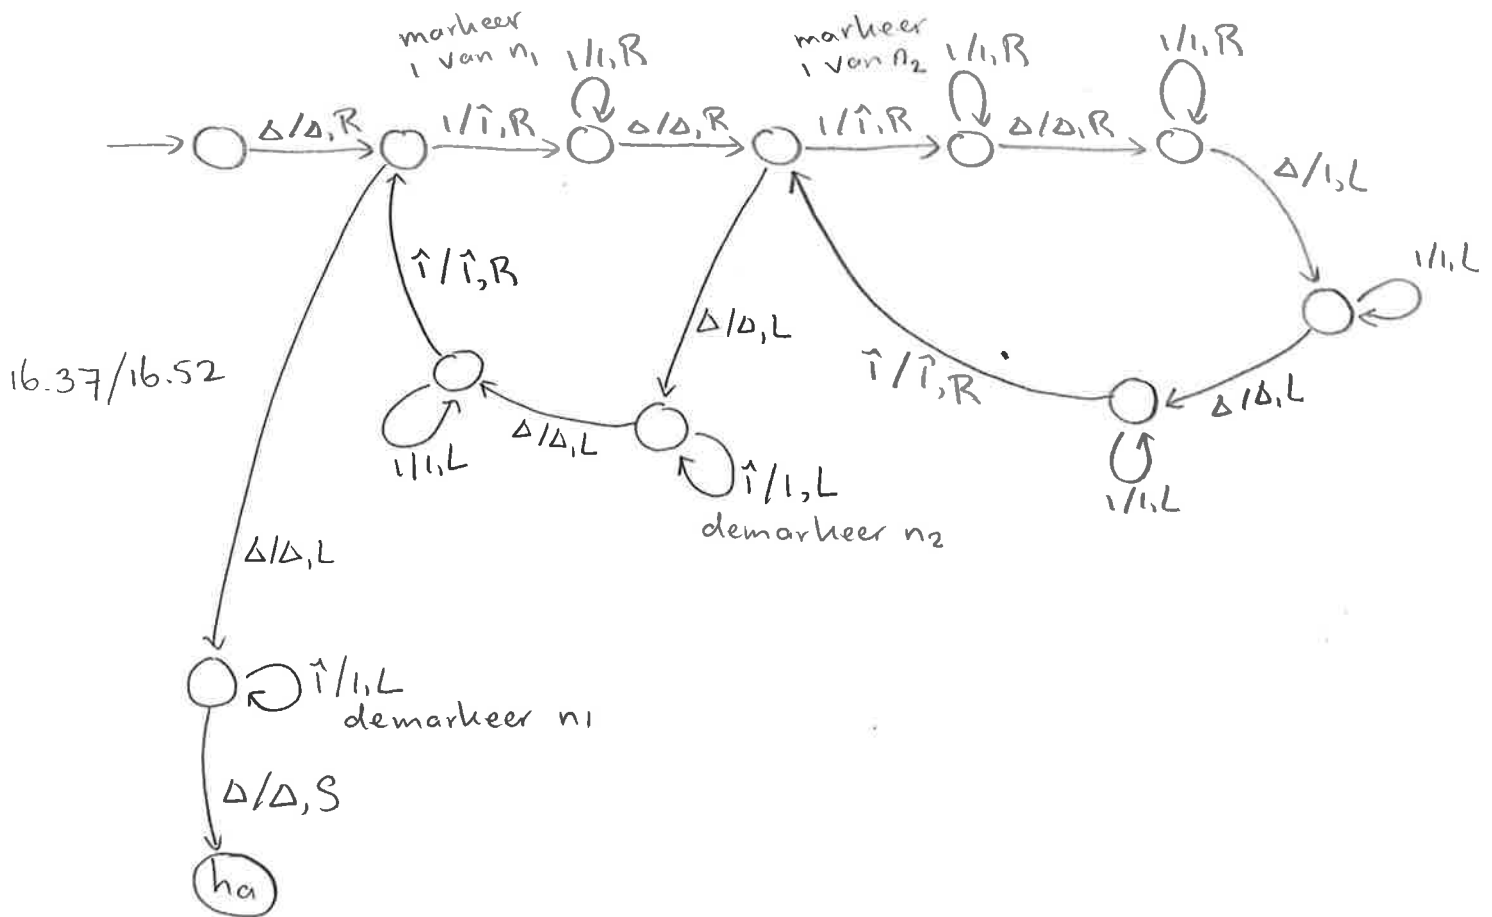 markeer
1 van n₁
1/1,R
markeer
1 van n₂
1/1,R
1/1,R
Δ/Δ,R
1/1̂,R
Δ/Δ,R
1/1̂,R
Δ/Δ,R
Δ/1,L
1̂/1̂,R
1/1,L
Δ/Δ,L
16.37/16.52
1̂/1̂,R
Δ/Δ,L
Δ/Δ,L
1/1,L
1̂/1,L
1/1,L
demarkeer n₂
Δ/Δ,L
1̂/1,L
demarkeer n₁
Δ/Δ,S
ha